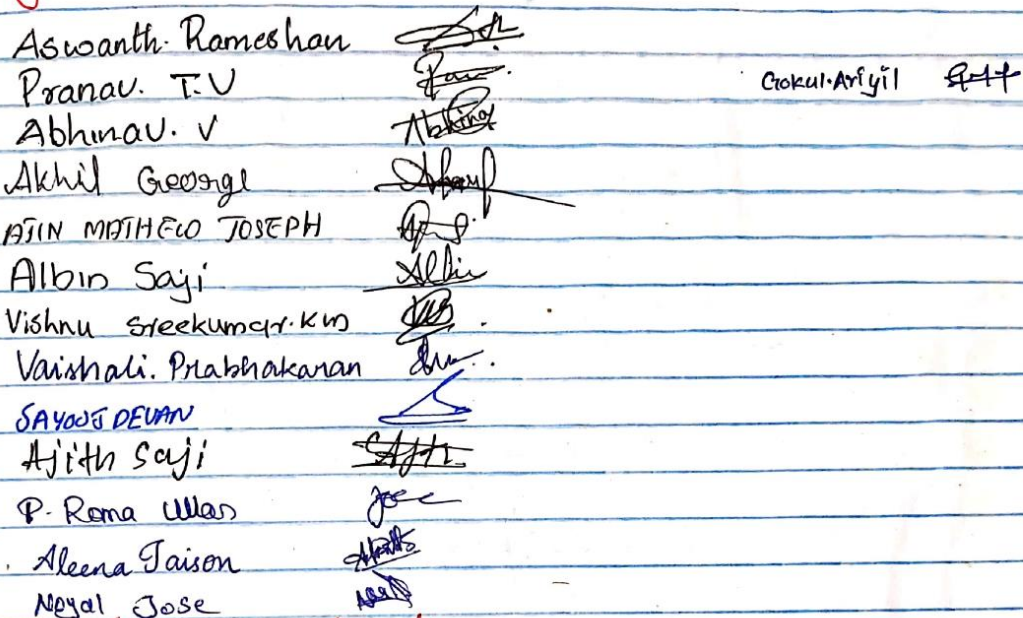 Aswanth. Rameshan
Pranav. T.V
Gokul.Ariyil
Abhinav. V Abhinav
Akhil George
AJIN MATHEW JOSEPH
Albin Saji Albin
Vishnu Sreekumar.KM
Vaishali. Prabhakaran
SAYOOJ DEVAN
Ajith Saji
P. Roma Ullas
Aleena Jaison
Neyal Jose